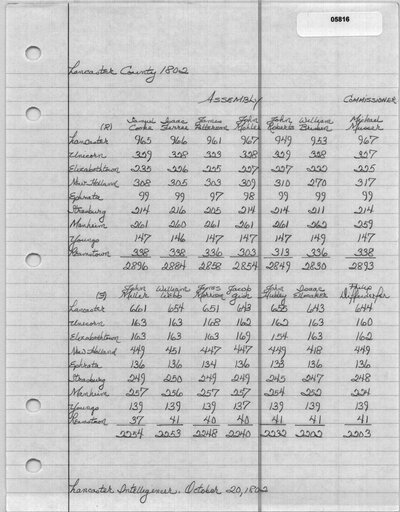 05816
Lancaster County 1802
ASSEMBLY COMMISSIONER
Samuel Isaac James John John William Michael
(R) Cooke Ferree Patterson Roberts Musser
Lancaster 965 966 961 967 949 953 967
Unicorn 359 358 353 358 359 358 357
Elizabethtown 235 226 225 227 227 222 225
New Holland 308 305 303 309 310 270 317
Ephrata 99 99 97 98 99 99 99
Strasburg 214 216 205 214 214 211 214
Manheim 261 260 261 261 261 262 259
Youngs 147 146 147 147 147 149 147
338 338 336 303 313 336 338
2896 2884 2858 2854 2849 2830 2893
John William James Jacob John Isaac Philip
(F) Miller Webb Morrison Gish Hubley Ellmaker Diffenderfer
Lancaster 661 654 651 643 655 643 644
Unicorn 163 163 168 162 162 163 160
Elizabethtown 163 163 163 169 154 163 162
New Holland 449 451 447 447 449 418 449
Ephrata 136 136 134 136 133 136 136
Strasburg 249 250 249 249 245 247 248
Manheim 257 256 257 257 254 252 224
Youngs 139 139 139 137 139 139 139
37 41 40 40 41 41 41
2254 2253 2248 2240 2232 2202 2203
Lancaster Intelligencer. October 20, 1802